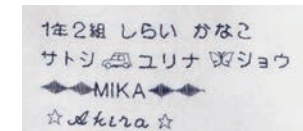 1年2組 しらい かなこ
サトシ ユリナ ショウ
MIKA
☆Akira☆